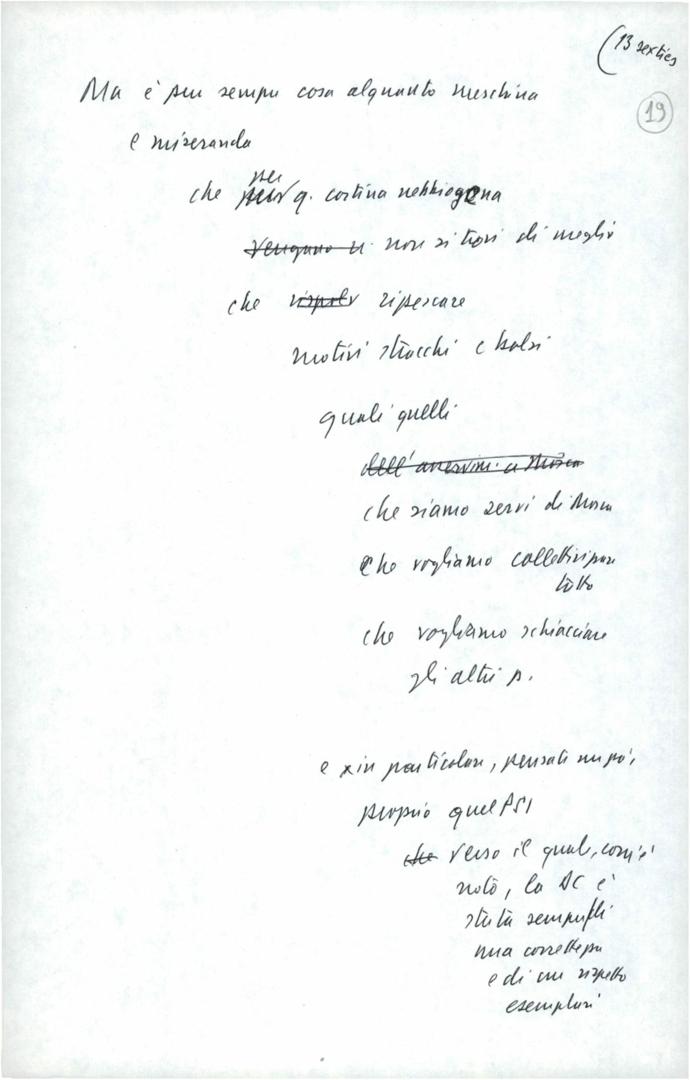 (13 sexties
19
Ma è pur sempre cosa alquanto meschina
e miseranda
che per q. cortina nebbiogena
vengano non si trovi di meglio
che ripescare
motivi stracchi e bolsi
quali quelli
dell' a Mosca
che siamo servi di Mosca
che vogliamo collettivizzare
tutto
che vogliamo schiacciare
gli altri p.
e in particolare, pensate un po',
proprio quel PSI
che verso il quale, com'è
noto, la DC è
stata sempre di
una correttezza
e di un rispetto
esemplari